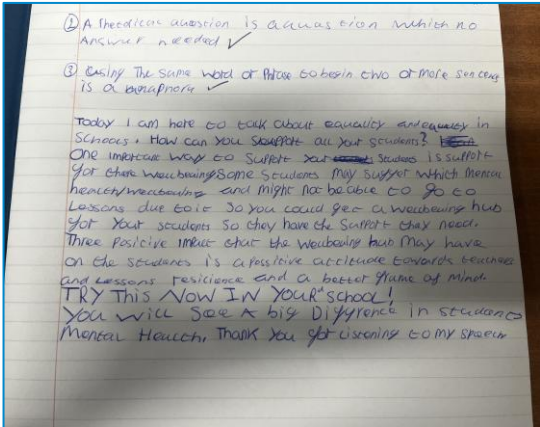 ② A rhetorical question is a question which no
Answer needed ✓
③ Using The same word or Phrase to begin two or more sentence
is a anaphora ✓
Today I am here to talk about equality and equity in
Schools. How can you support all your students?
One important way to support your students is support
for there weelbeing Some Students may suffer which mental
health/weelbeing and might not be able to go to
Lessons due to it So you could get a weelbeing hub
for your students So they have the Support they need.
Three Positive impact that the weelbeing hub may have
on the students is a possitive attitude towards teachers
and Lessons resilience and a better frame of mind.
TRY This NOW IN YOUR school!
You Will See A big Diffrence in students
Mental Health. Thank You for Listening to my speech